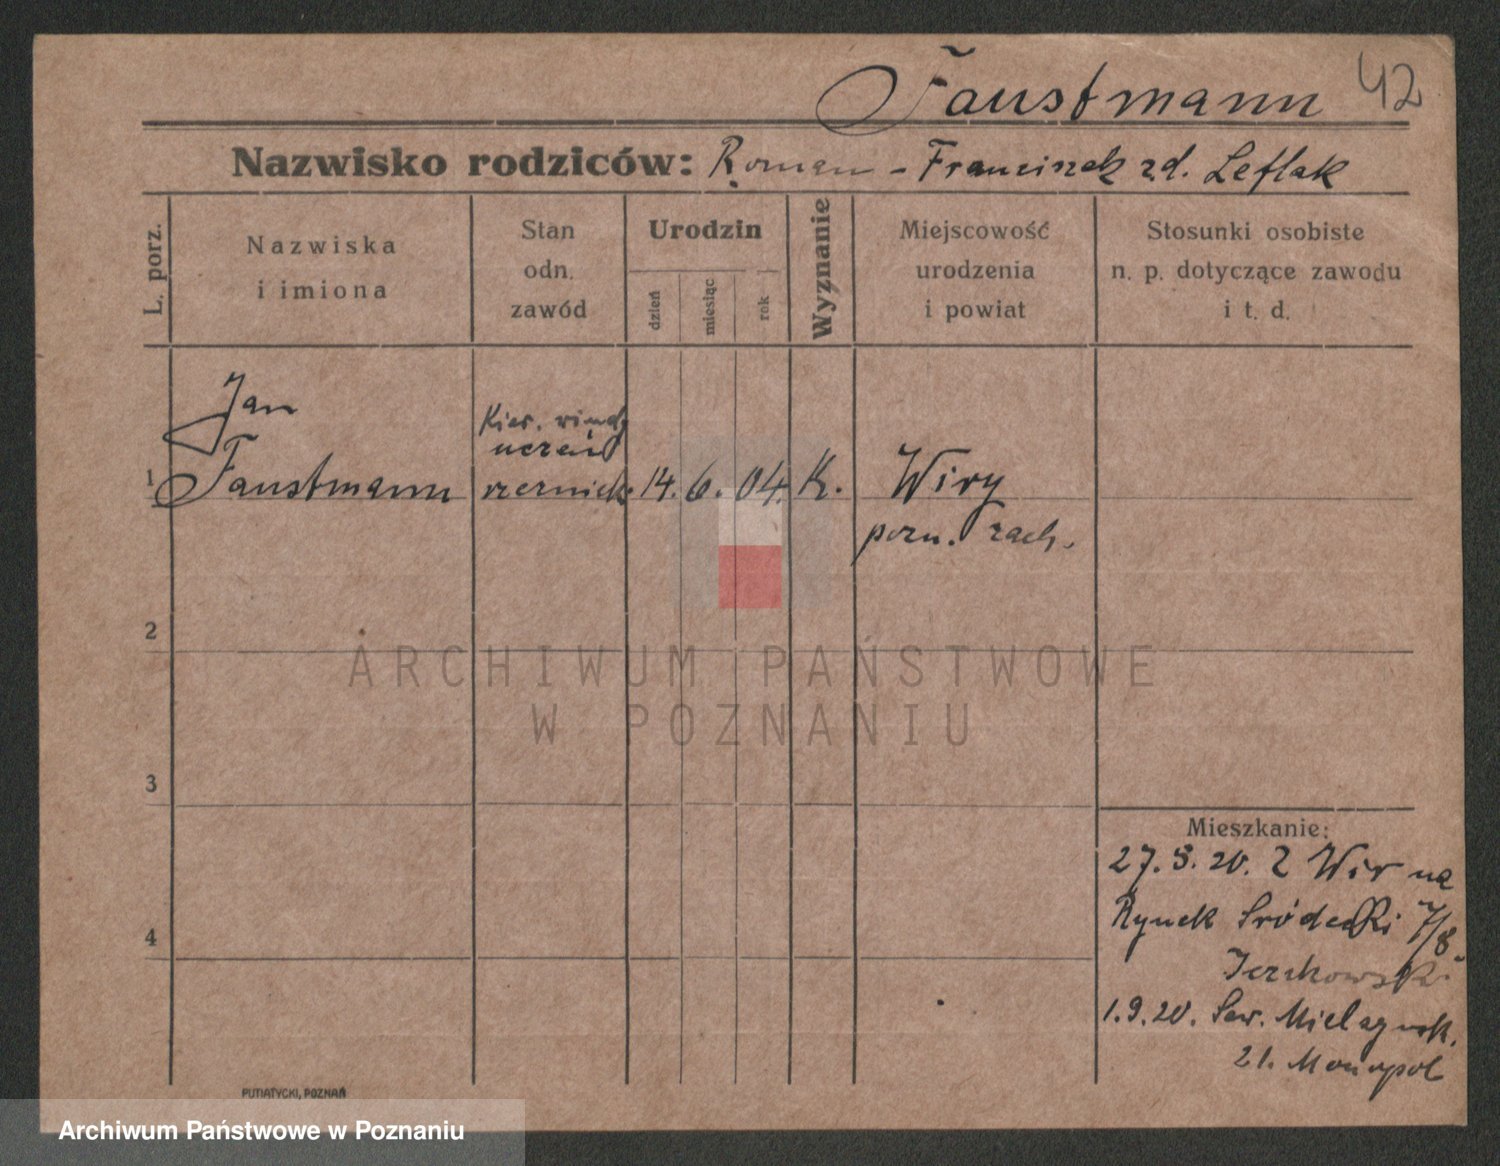 Faustmann 42
Nazwisko rodziców: Roman - Franciszek zd. Leflak
L. porz.
Nazwiska
i imiona
Stan
odn.
zawód
Urodzin
dzień
miesiąc
rok
Wyznanie
Miejscowość
urodzenia
i powiat
Stosunki osobiste
n. p. dotyczące zawodu
i t. d.
Jan
Kier. windy
uczeń
1 Faustmann rzeźnick. 14. 6. 04. K. Wiry
pozn. zach.
2
3
4
Mieszkanie:
27. 3. 20. Z Wir na
Rynek Śródecki 7/8
1.9.20. Sew. Mielzynsk.
21. Monopol
PUTIATYCKI, POZNAŃ
ARCHIWUM PAŃSTWOWE
W POZNANIU
Archiwum Państwowe w Poznaniu